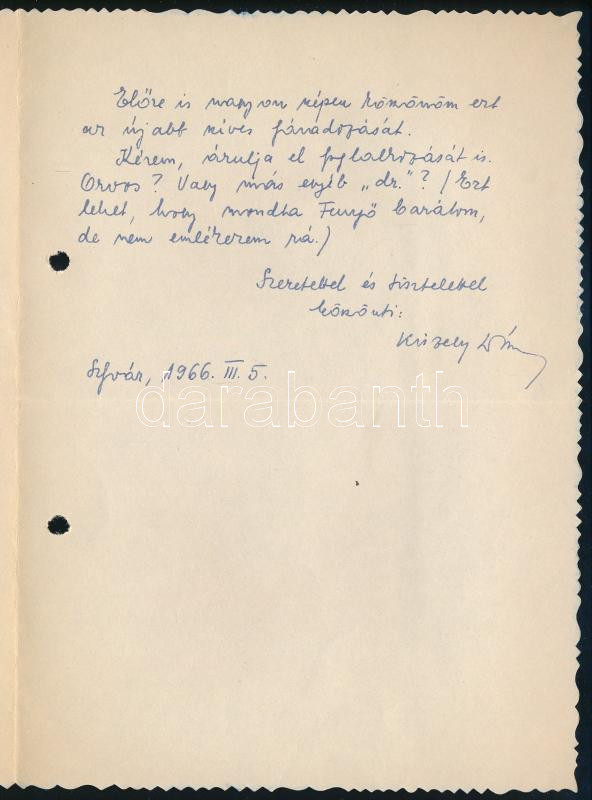 Előre is nagyon szépen köszönöm ezt
az újabb szíves fáradozását.
Kérem, árulja el foglalkozását is.
Orvos? Vagy más egyéb „dr."? (Ezt
lehet, hogy mondta Fenyő barátom,
de nem emlékezem rá.)
Szeretettel és tisztelettel
köszönti:
Kiszely
Szfvár, 1966. III. 5.
darabanth